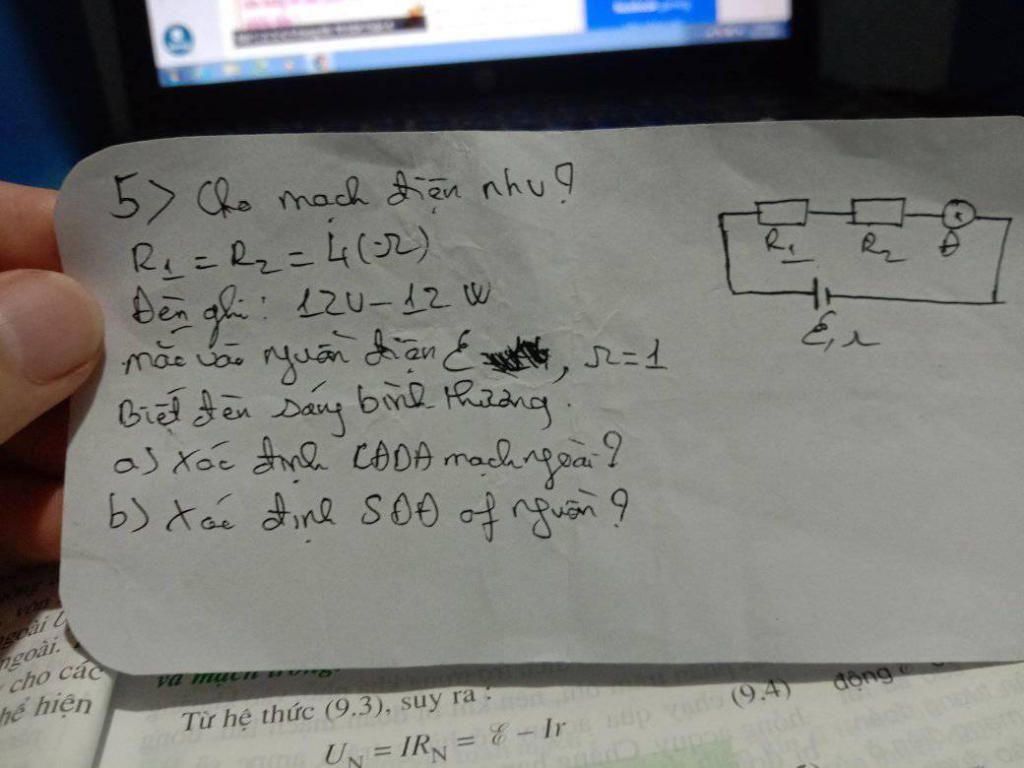 5> Cho mạch điện như?
R1 = R2 = 4(Ω)
Đèn ghi: 12V – 12 W
mắc vào nguồn điện ℰ , r = 1
Biết đèn sáng bình thường.
a) Xác định CĐDĐ mạch ngoài?
b) Xác định SĐĐ of nguồn?
R1 R2 Đ
ℰ, r
ngoài
ngoài.
cho các
hể hiện
và mạch trong.
Từ hệ thức (9.3), suy ra :
(9.4)
động
UN = IRN = ℰ – Ir